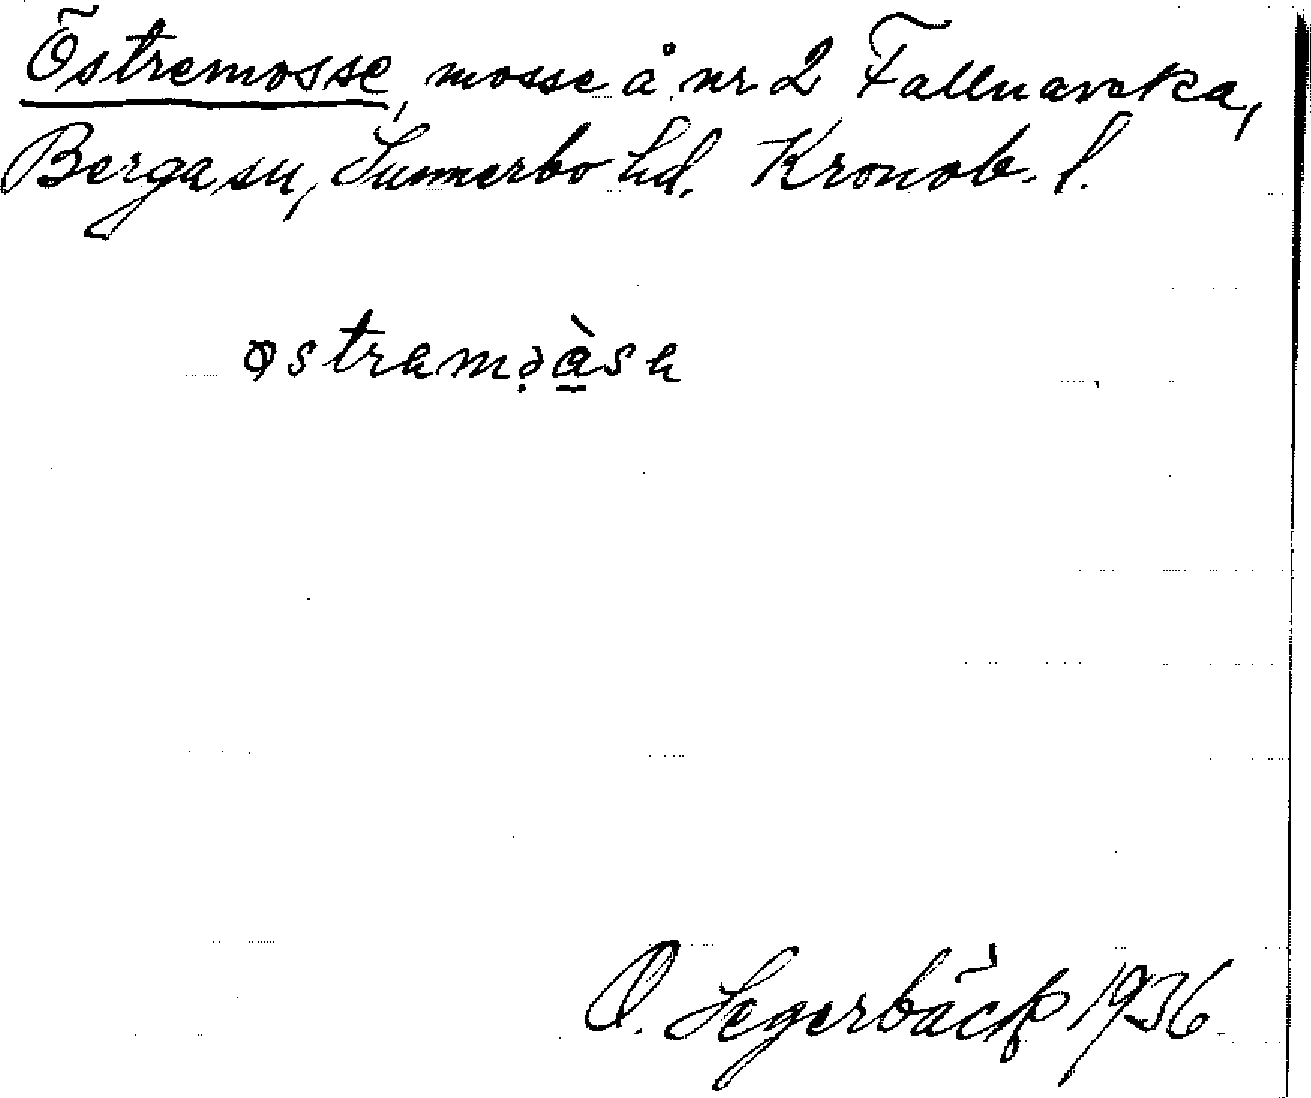 Östremosse, mosse å nr 2 Fallnaveka,
Bergasn, Sunnerbo hd. Kronob. l.
O. Segerbäck 1936